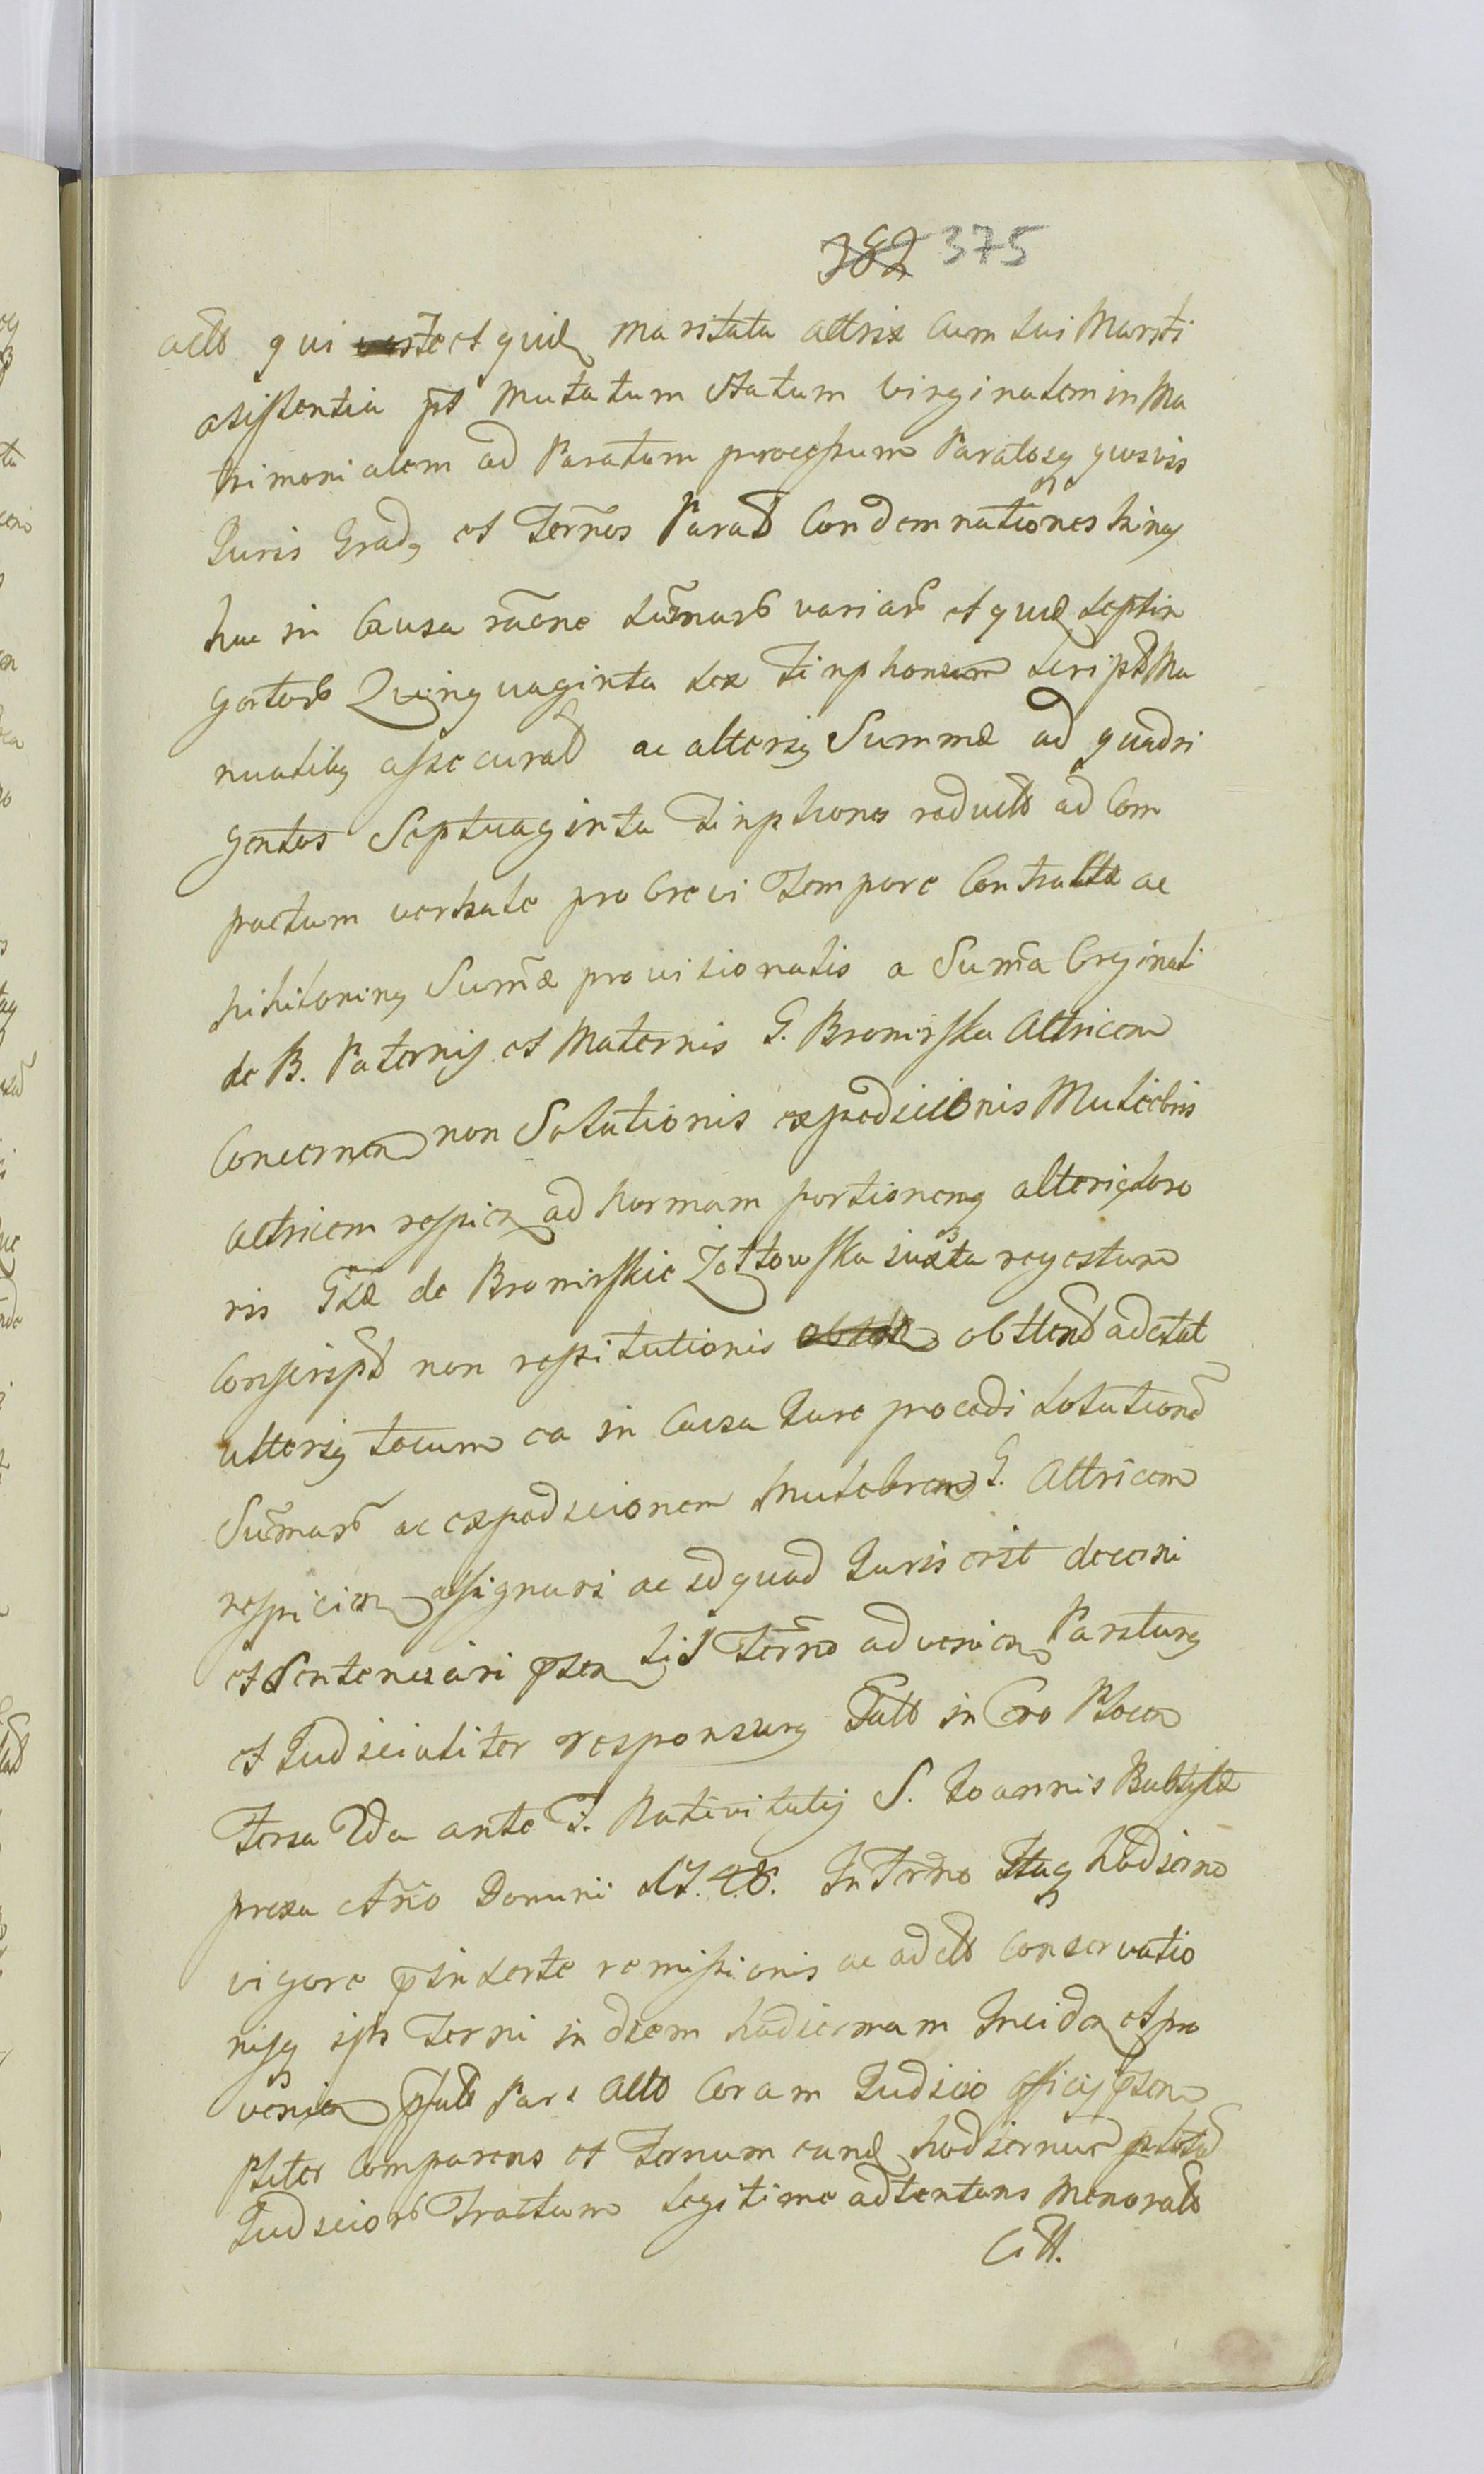 382 375
actt qui iste et quidq maritata actrix Cum sui Mariti
assistentia pt mutatum statum virginalem in Ma
trimonialem ad Paratum processum Paratosq quosvis
Juris Gradq et Termos Parat Condemnationes hinq
hac in Causa raone sumarb variarb et quidq septin
gentorb Quinquaginta sex Tinphonum script Ma
nualibq assecurat ac altersq Summæ ad quadri
gentos Septuaginta Tinphones reduct ad Com
pactum versate pro brevi Tempore Contractæ ac
Sumæ provisionalis a Suma Orginali
de B. Paternis et Maternis G. Bromirska Actricem
Concernen non Solutionis expedicionis Muliebris
actricem respicen ad normam portionemq alterig soro
ris Gsæ de Bromirskie Zółtowska iuxta regestrum
Conscript non restitutionis obtten adcitat
altersq tecum ea in Causa Jure procedi solutione
Sumarb ac expedicionem Mulebrem G. Actricem
respicien assignari ac id quod Juris erit decerni
et Sentenciari pten sis Termo advenien Pariturq
et Judicialiter responsurq Datt in Cro Plocen
Fersa 2da ante F. Nativitatis S. Joannis Babtystæ
prexa Ano Domini 17.48. In Trmo Itaq hodierno
vigore pinserte remissionis ac adctt Conservatio
nisq ipts Termi in diem hodiernam Inciden et pro
venien pfatt Pars Actt Coram Judicio officij pten
psliter Comparens et Termum eund hodiernum
Judiciorb Tractum legitime adtentans Menoratt
Citt.